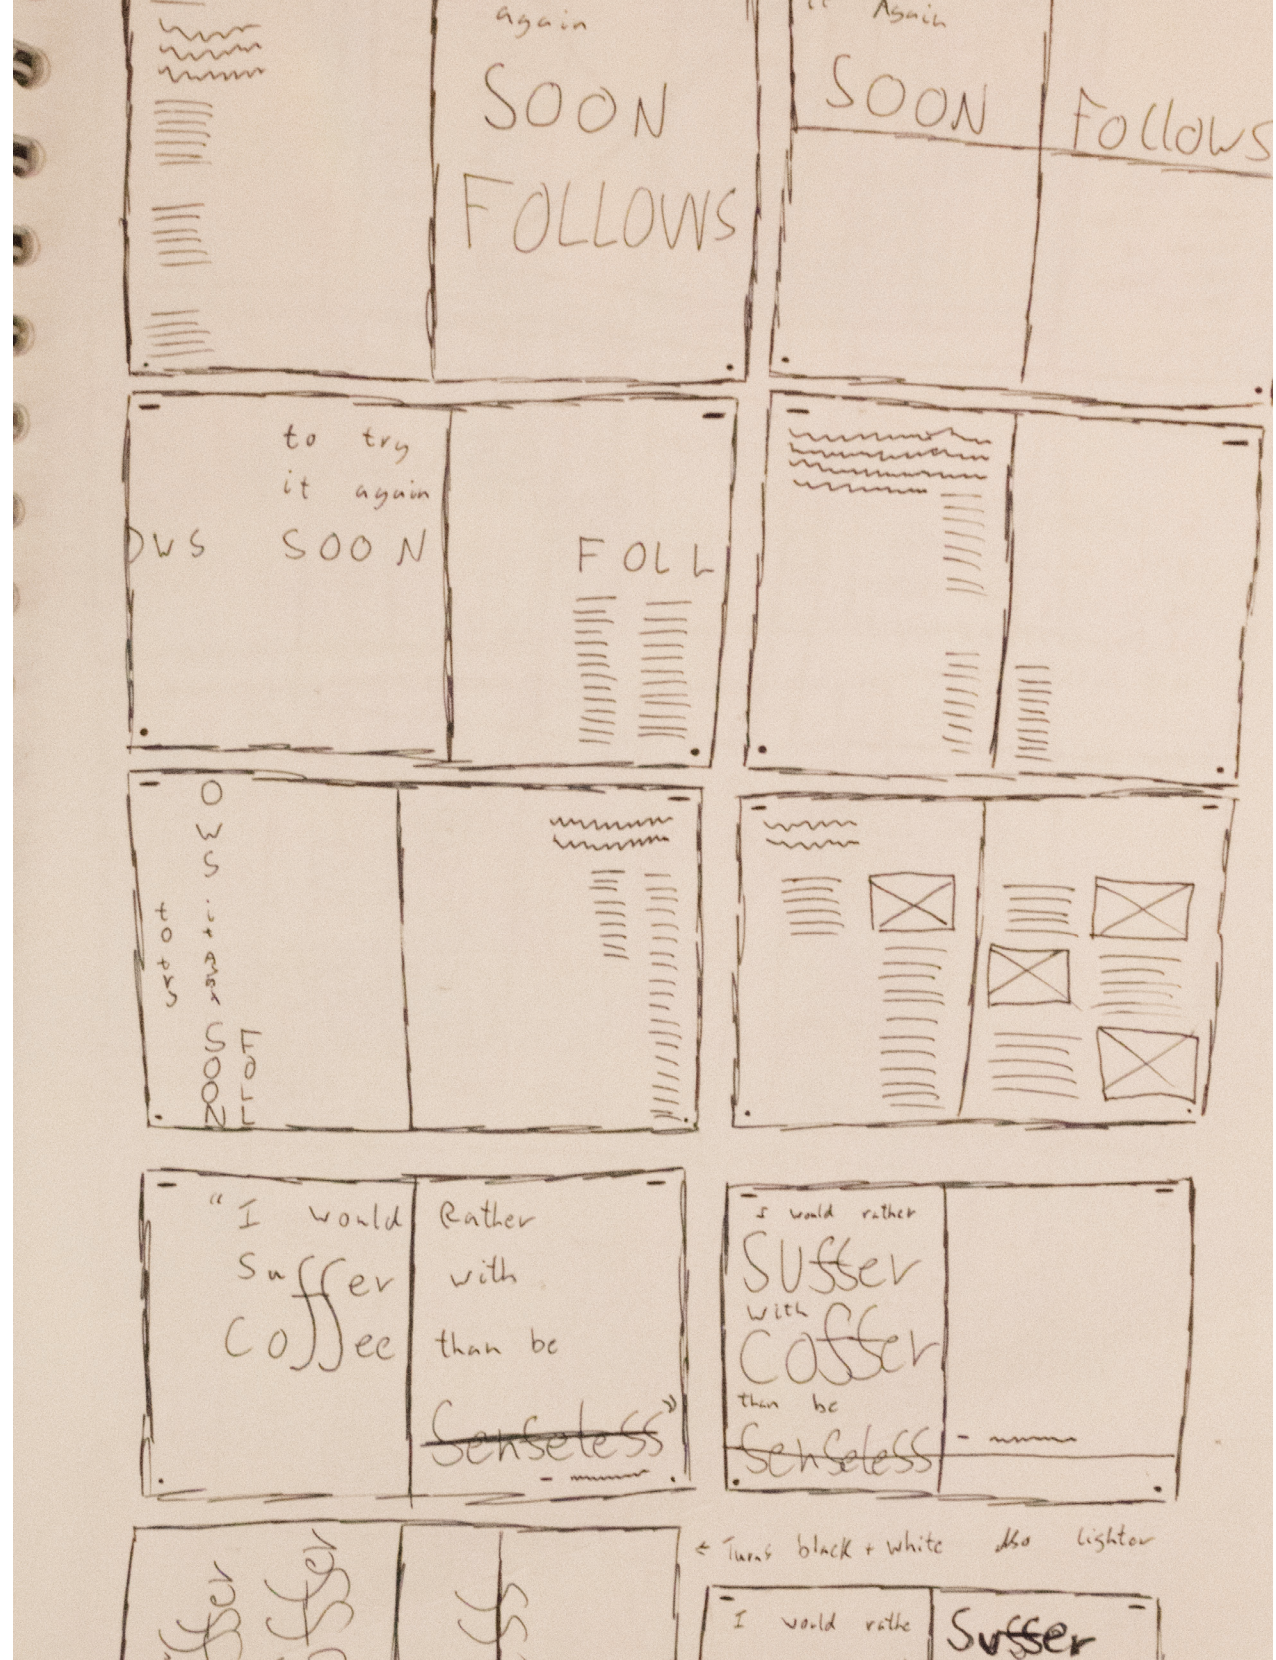 again
SOON
FOLLOWS
it Again
SOON
FOLLOWS
to try
it again
OWS SOON
FOLL
O
W
S
to try
it
Again
SOON
FOLL
"I would
Suffer
Coffee
Rather
with
than be
Senseless"
I would rather
Suffer
with
Coffer
than be
Senseless
← Turns black + white Also lighter
I would rathe
Suffer